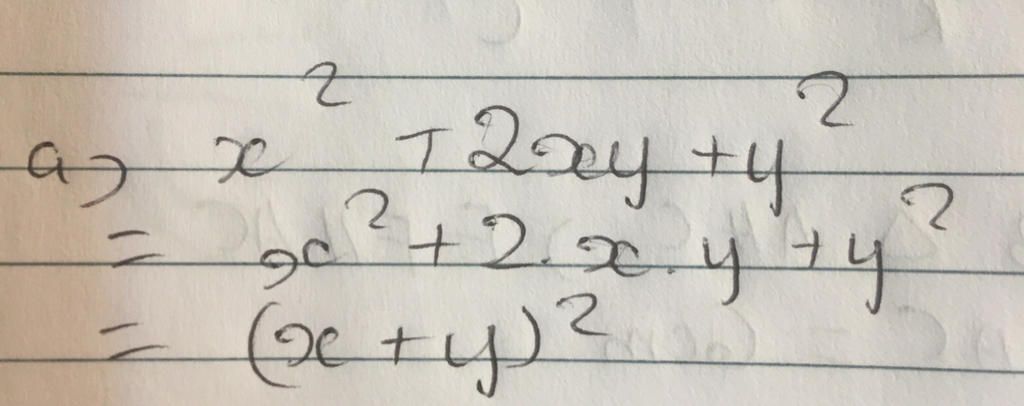 a) x² + 2xy + y²
= x² + 2.x.y + y²
= (x + y)²